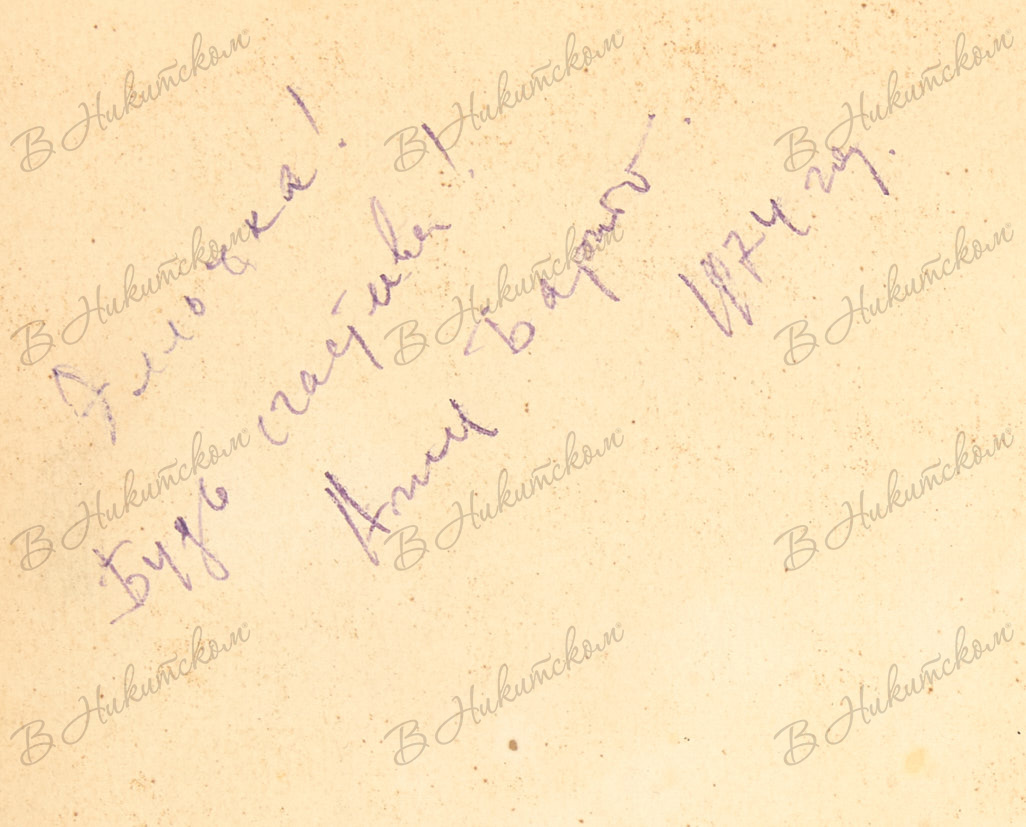 Эллочка!
Будь счастлива!
Агния Барто.
1974 год.
В Никитском В Никитском В Никитском
В Никитском В Никитском В Никитском
В Никитском В Никитском В Никитском
В Никитском В Никитском В Никитском